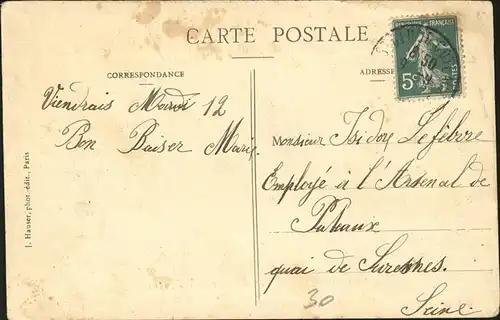 CARTE POSTALE
CORRESPONDANCE
ADRESSE
RÉPUBLIQUE FRANÇAISE
5c
POSTES
30
Viendrais Mardi 12
Bon Baiser Marie
Monsieur Isidore Lefebvre
Employé à l'Arsenal de
Puteaux
quai de Suresnes.
Seine
30
J. Hauser, phot.-édit., Paris